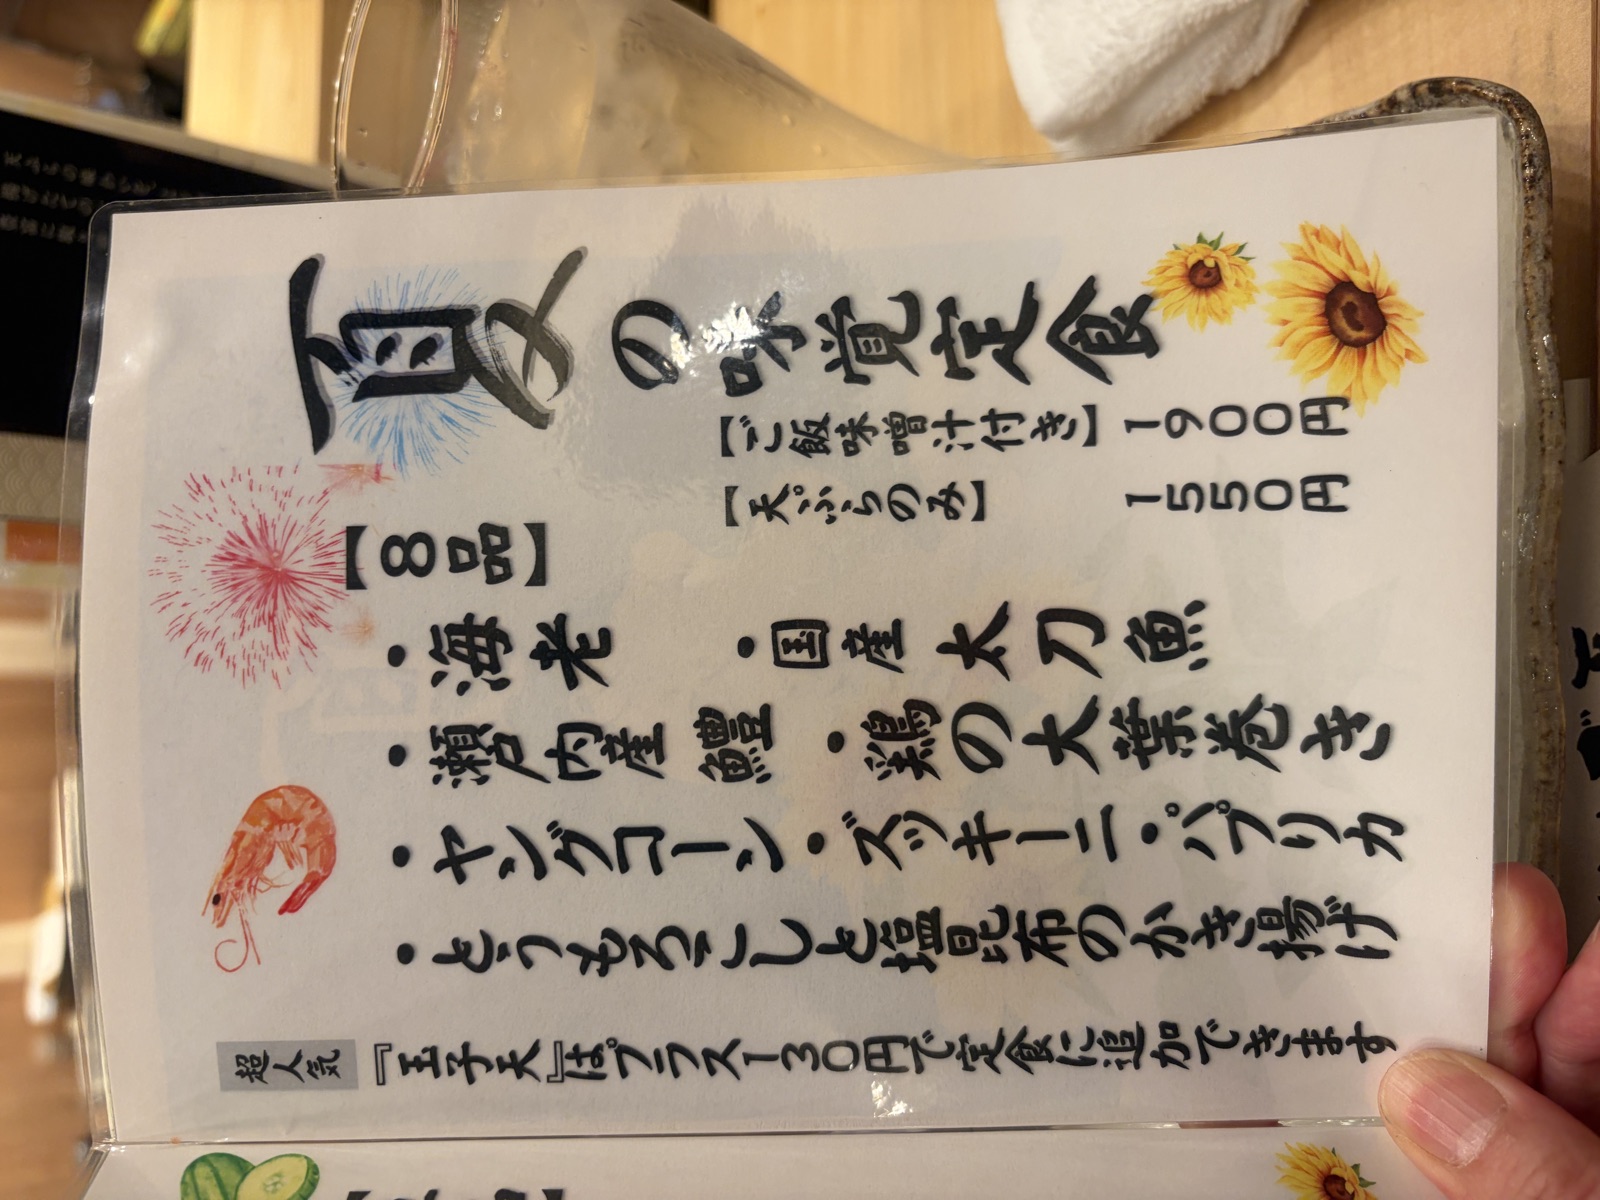 夏の味覚定食
【ご飯味噌汁付き】 1900円
【天ぷらのみ】 1550円
【8品】
・海老 ・国産太刀魚
・瀬戸内産鱧 ・鶏の大葉巻き
・ヤングコーン・ズッキーニ・パプリカ
・とうもろこしと塩昆布のかき揚げ
超人気 『玉子天』はプラス130円で定食に追加できます